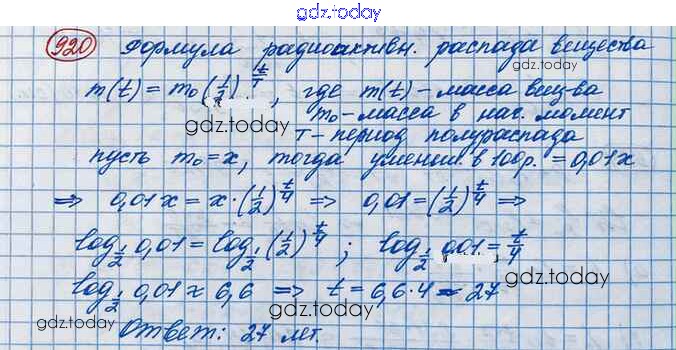 gdz.today
920 Формула радиоактивн. распада вещества
m(t) = m₀(1/2)^(t/T), где m(t) - масса вещ-ва
m₀ - масса в нач. момент
gdz.today
T - период полураспада
gdz.today
пусть m₀ = x, тогда уменьш. в 100р. = 0,01x
⇒ 0,01x = x·(1/2)^(t/4) ⇒ 0,01 = (1/2)^(t/4) ⇒
gdz.today
log_(1/2) 0,01 = log_(1/2) (1/2)^(t/4); log_(1/2) 0,01 = t/4
gdz.today
log_(1/2) 0,01 ≈ 6,6 ⇒ t = 6,6·4 ≈ 27
gdz.today
gdz.today
Ответ: 27 лет.